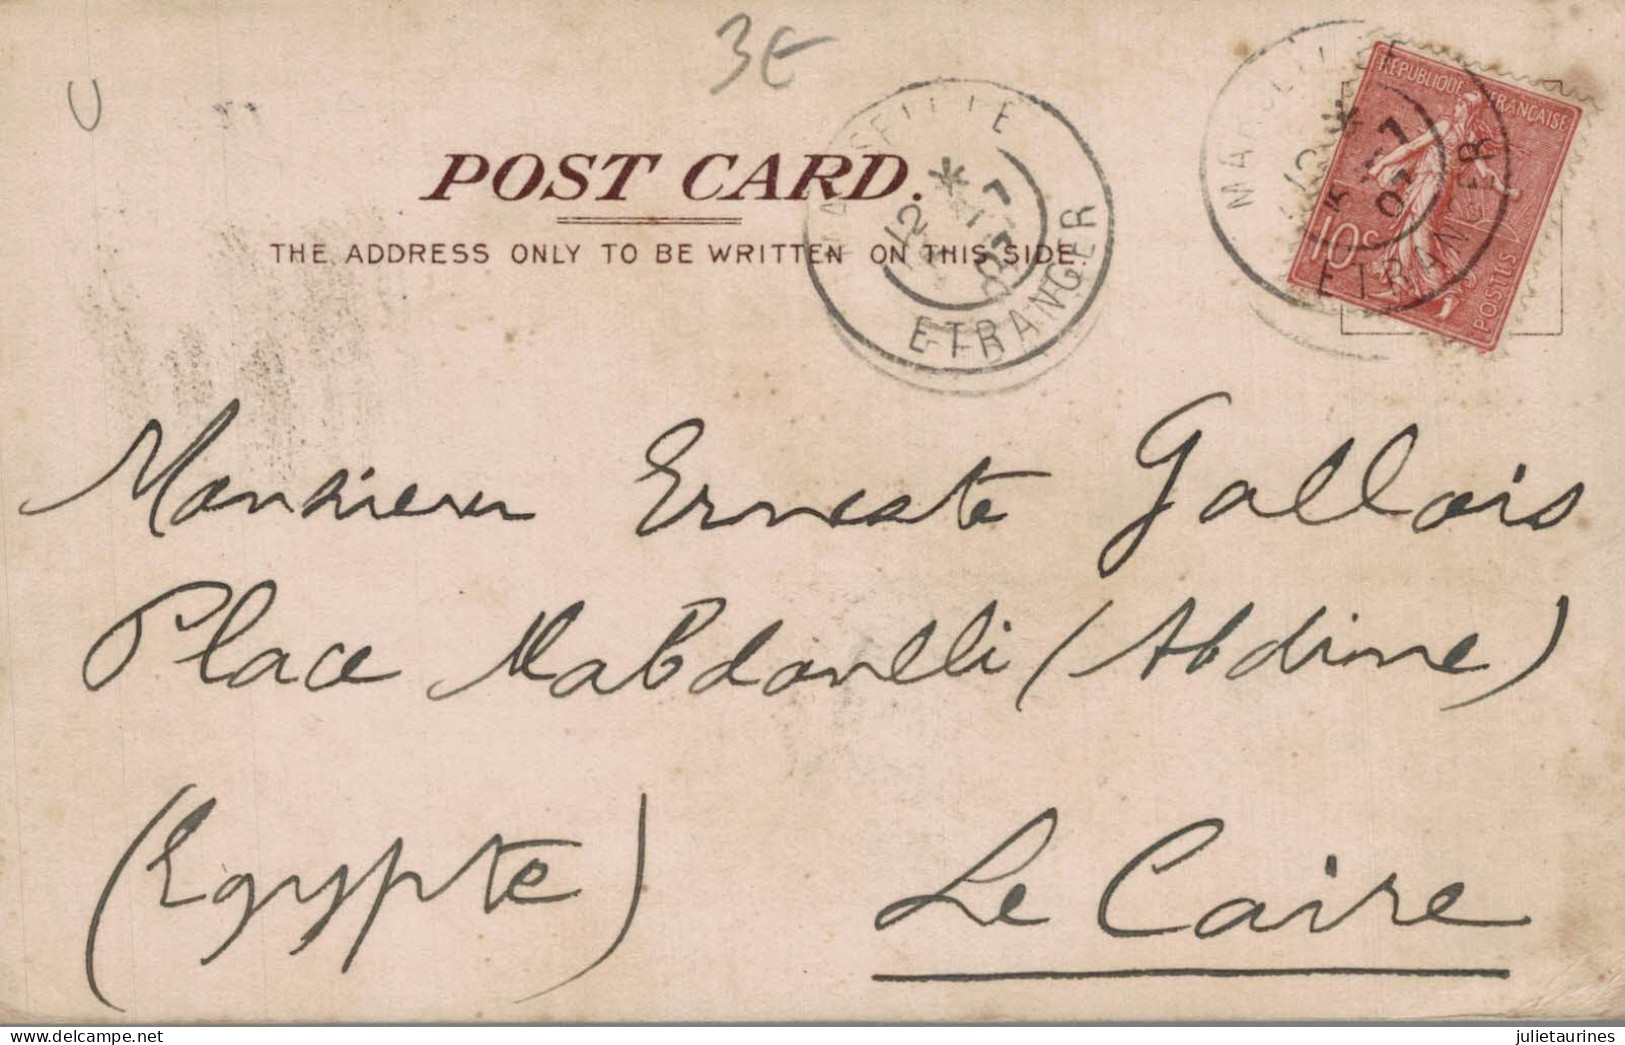 3€
POST CARD.
THE ADDRESS ONLY TO BE WRITTEN ON THIS SIDE.
MARSEILLE
12
07
ETRANGER
MARSEILLE
07
ETRANGER
REPUBLIQUE FRANÇAISE
10c
POSTES
Monsieur Erneste Gallois
Place Mabdouelli (Abdine)
(Egypte) Le Caire
julietaurines